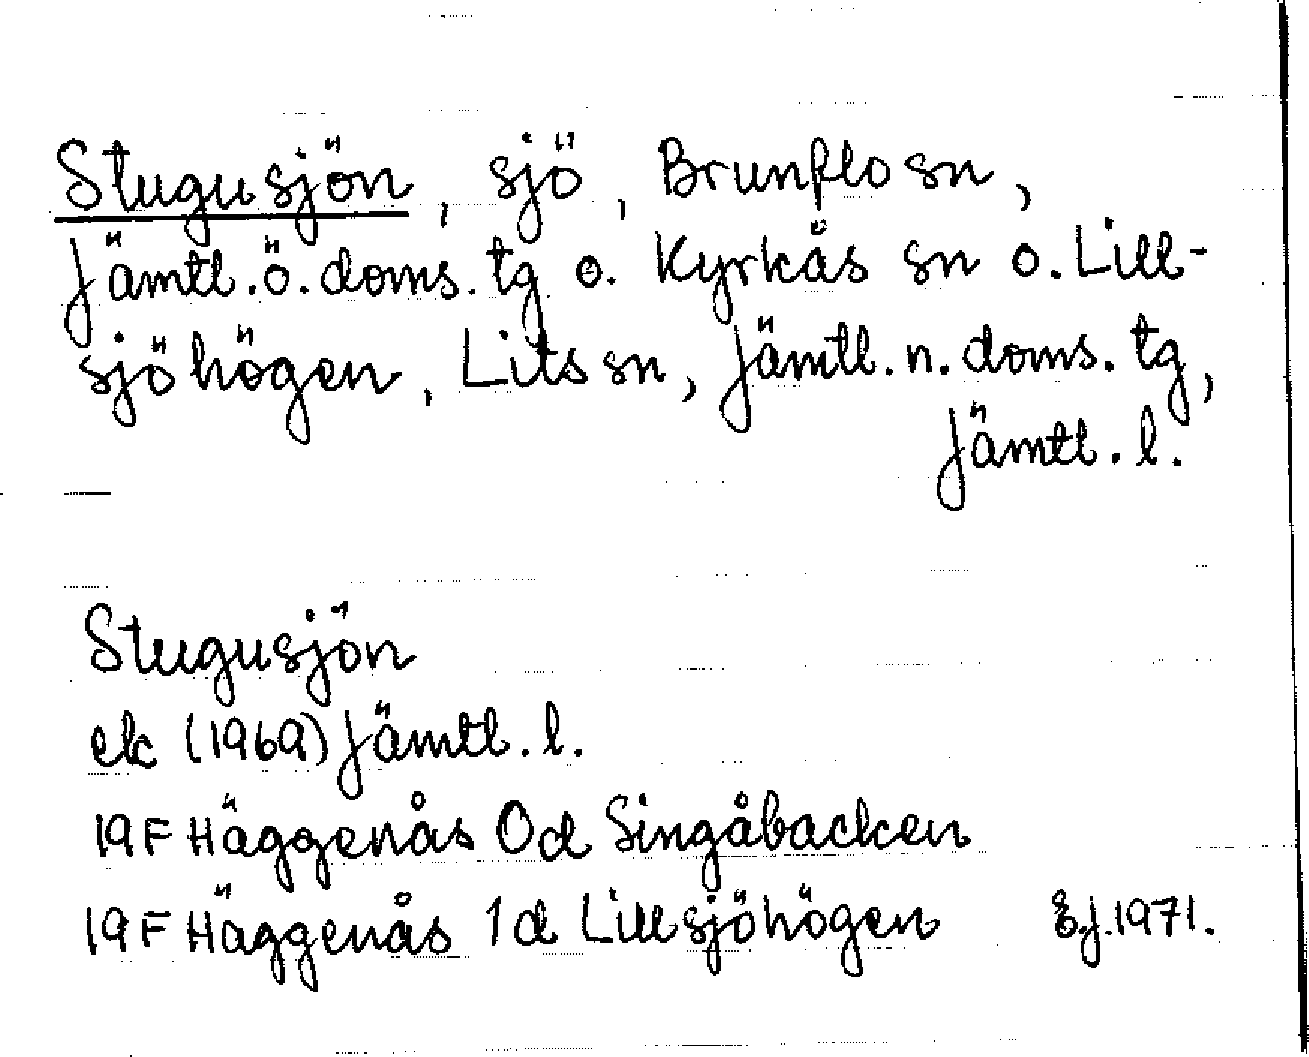 Stugusjön, sjö, Brunflo sn,
Jämtl. ö. doms. tg o. Kyrkås sn o. Lill-
sjöhögen, Lits sn, Jämtl. n. doms. tg,
Jämtl. l.
Stugusjön
ek (1969) Jämtl. l.
19F Häggenås 0d Singåbacken
19F Häggenås 1d Lillsjöhögen
1971.